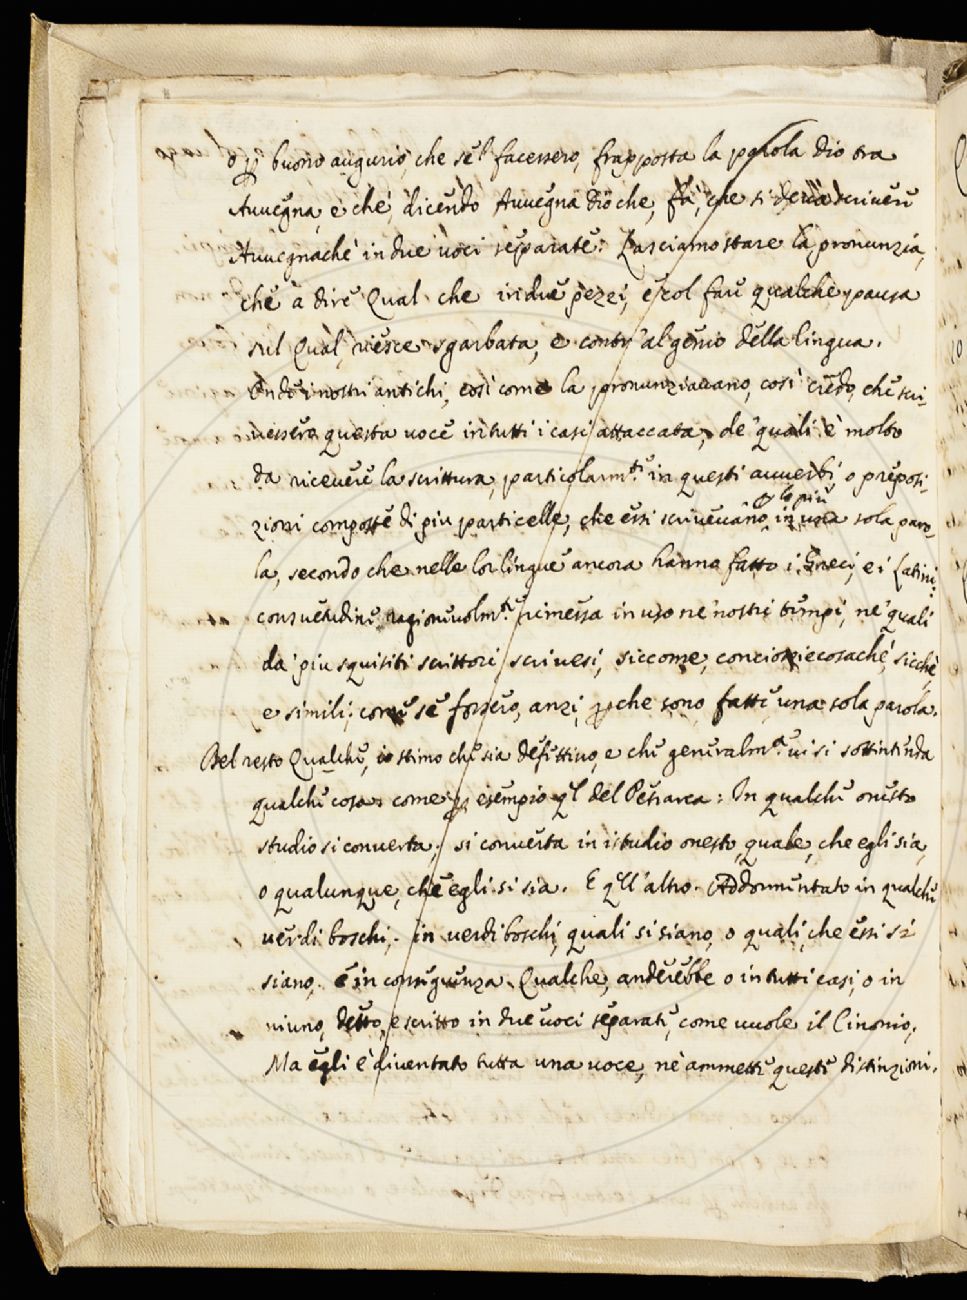 o p buono augurio, che se'l facessero, frapposta la parola Dio tra
Avvegna, e che, dicendo Avvegna Dio che, fa, che si deva scrivere
Avvegnachè in due voci separate. Lasciamo stare la pronunzia,
che a dire Qual che in due pezzi, e col fare qualche pausa
sul Qual, riesce sgarbata, e contr'al genio della lingua.
Onde i nostri antichi, così come la pronunziavano, così credo, che scri-
vessero questa voce in tutti i casi attaccata, de' quali è molto
da ricevere la scrittura, particolarm.te in questi avverbi, o preposi-
zioni composte di piu particelle, che essi scrivevano p lo più in una sola paro-
la, secondo che nelle lor lingue ancora hanno fatto i Greci, e i Latini:
consuetudine ragionevolm.te rimessa in uso ne' nostri tempi, ne' quali
da' piu squisiti scrittori scrivesi, siccome, conciossiecosachè, sicchè,
e simili; come se fossero, anzi, p che sono fatte una sola parola.
Del resto Qualche, io stimo che sia defettivo, e che generalm.te vi si sottintenda
qualche cosa: come p esempio ql del Petrarca: In qualche onesto
studio si converta. si converta in istudio onesto, quale, che egli sia,
o qualunque, che egli si sia. E qll'altro. Addormentato in qualche
verdi boschi. in verdi boschi, quali si siano, o quali, che essi si
siano. e in conseguenza. Qualche, anderebbe o in tutti casi, o in
niuno, detto, e scritto in due voci separate, come vuole il Cinonio,
Ma egli è diventato tutta una voce, nè ammette queste distinzioni.